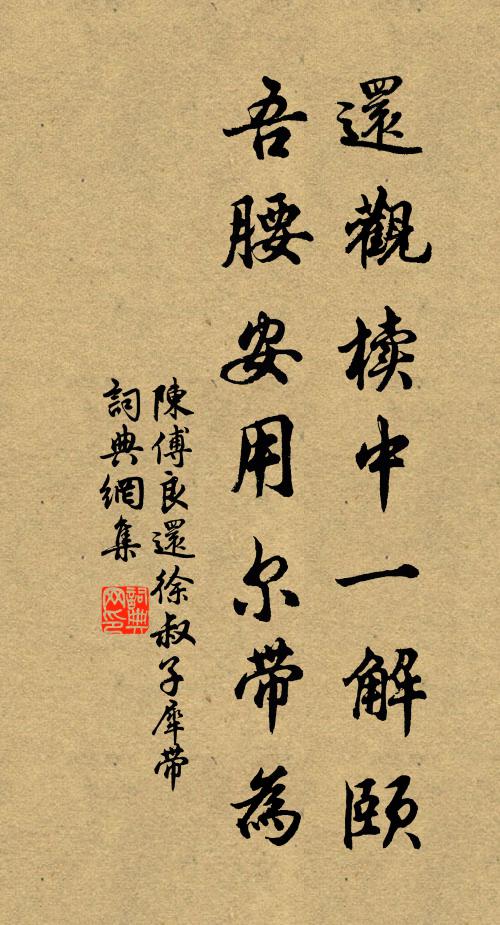 還觀櫝中一解頤
吾腰安用尔带為
陳傅良還徐叔子犀带
詞典網集
詞典
网印